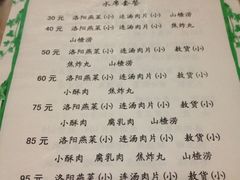 水席套餐
30元 洛阳燕菜(小) 连汤肉片(小)
40元 洛阳燕菜(小) 连汤肉片(小) 山楂涝
50元 洛阳燕菜(小) 连汤肉片(小) 敖货(小)
焦炸丸 山楂涝
60元 洛阳燕菜(小) 连汤肉片(小) 敖货(小)
小酥肉 焦炸丸 山楂涝
75元 洛阳燕菜(小) 连汤肉片(小) 敖货(小)
小酥肉 腐乳肉 山楂涝
85元 洛阳燕菜(小) 连汤肉片(小) 敖货(小)
小酥肉 腐乳肉 焦炸丸 山楂涝
95元 洛阳燕菜(小) 连汤肉片(小) 敖货(小)